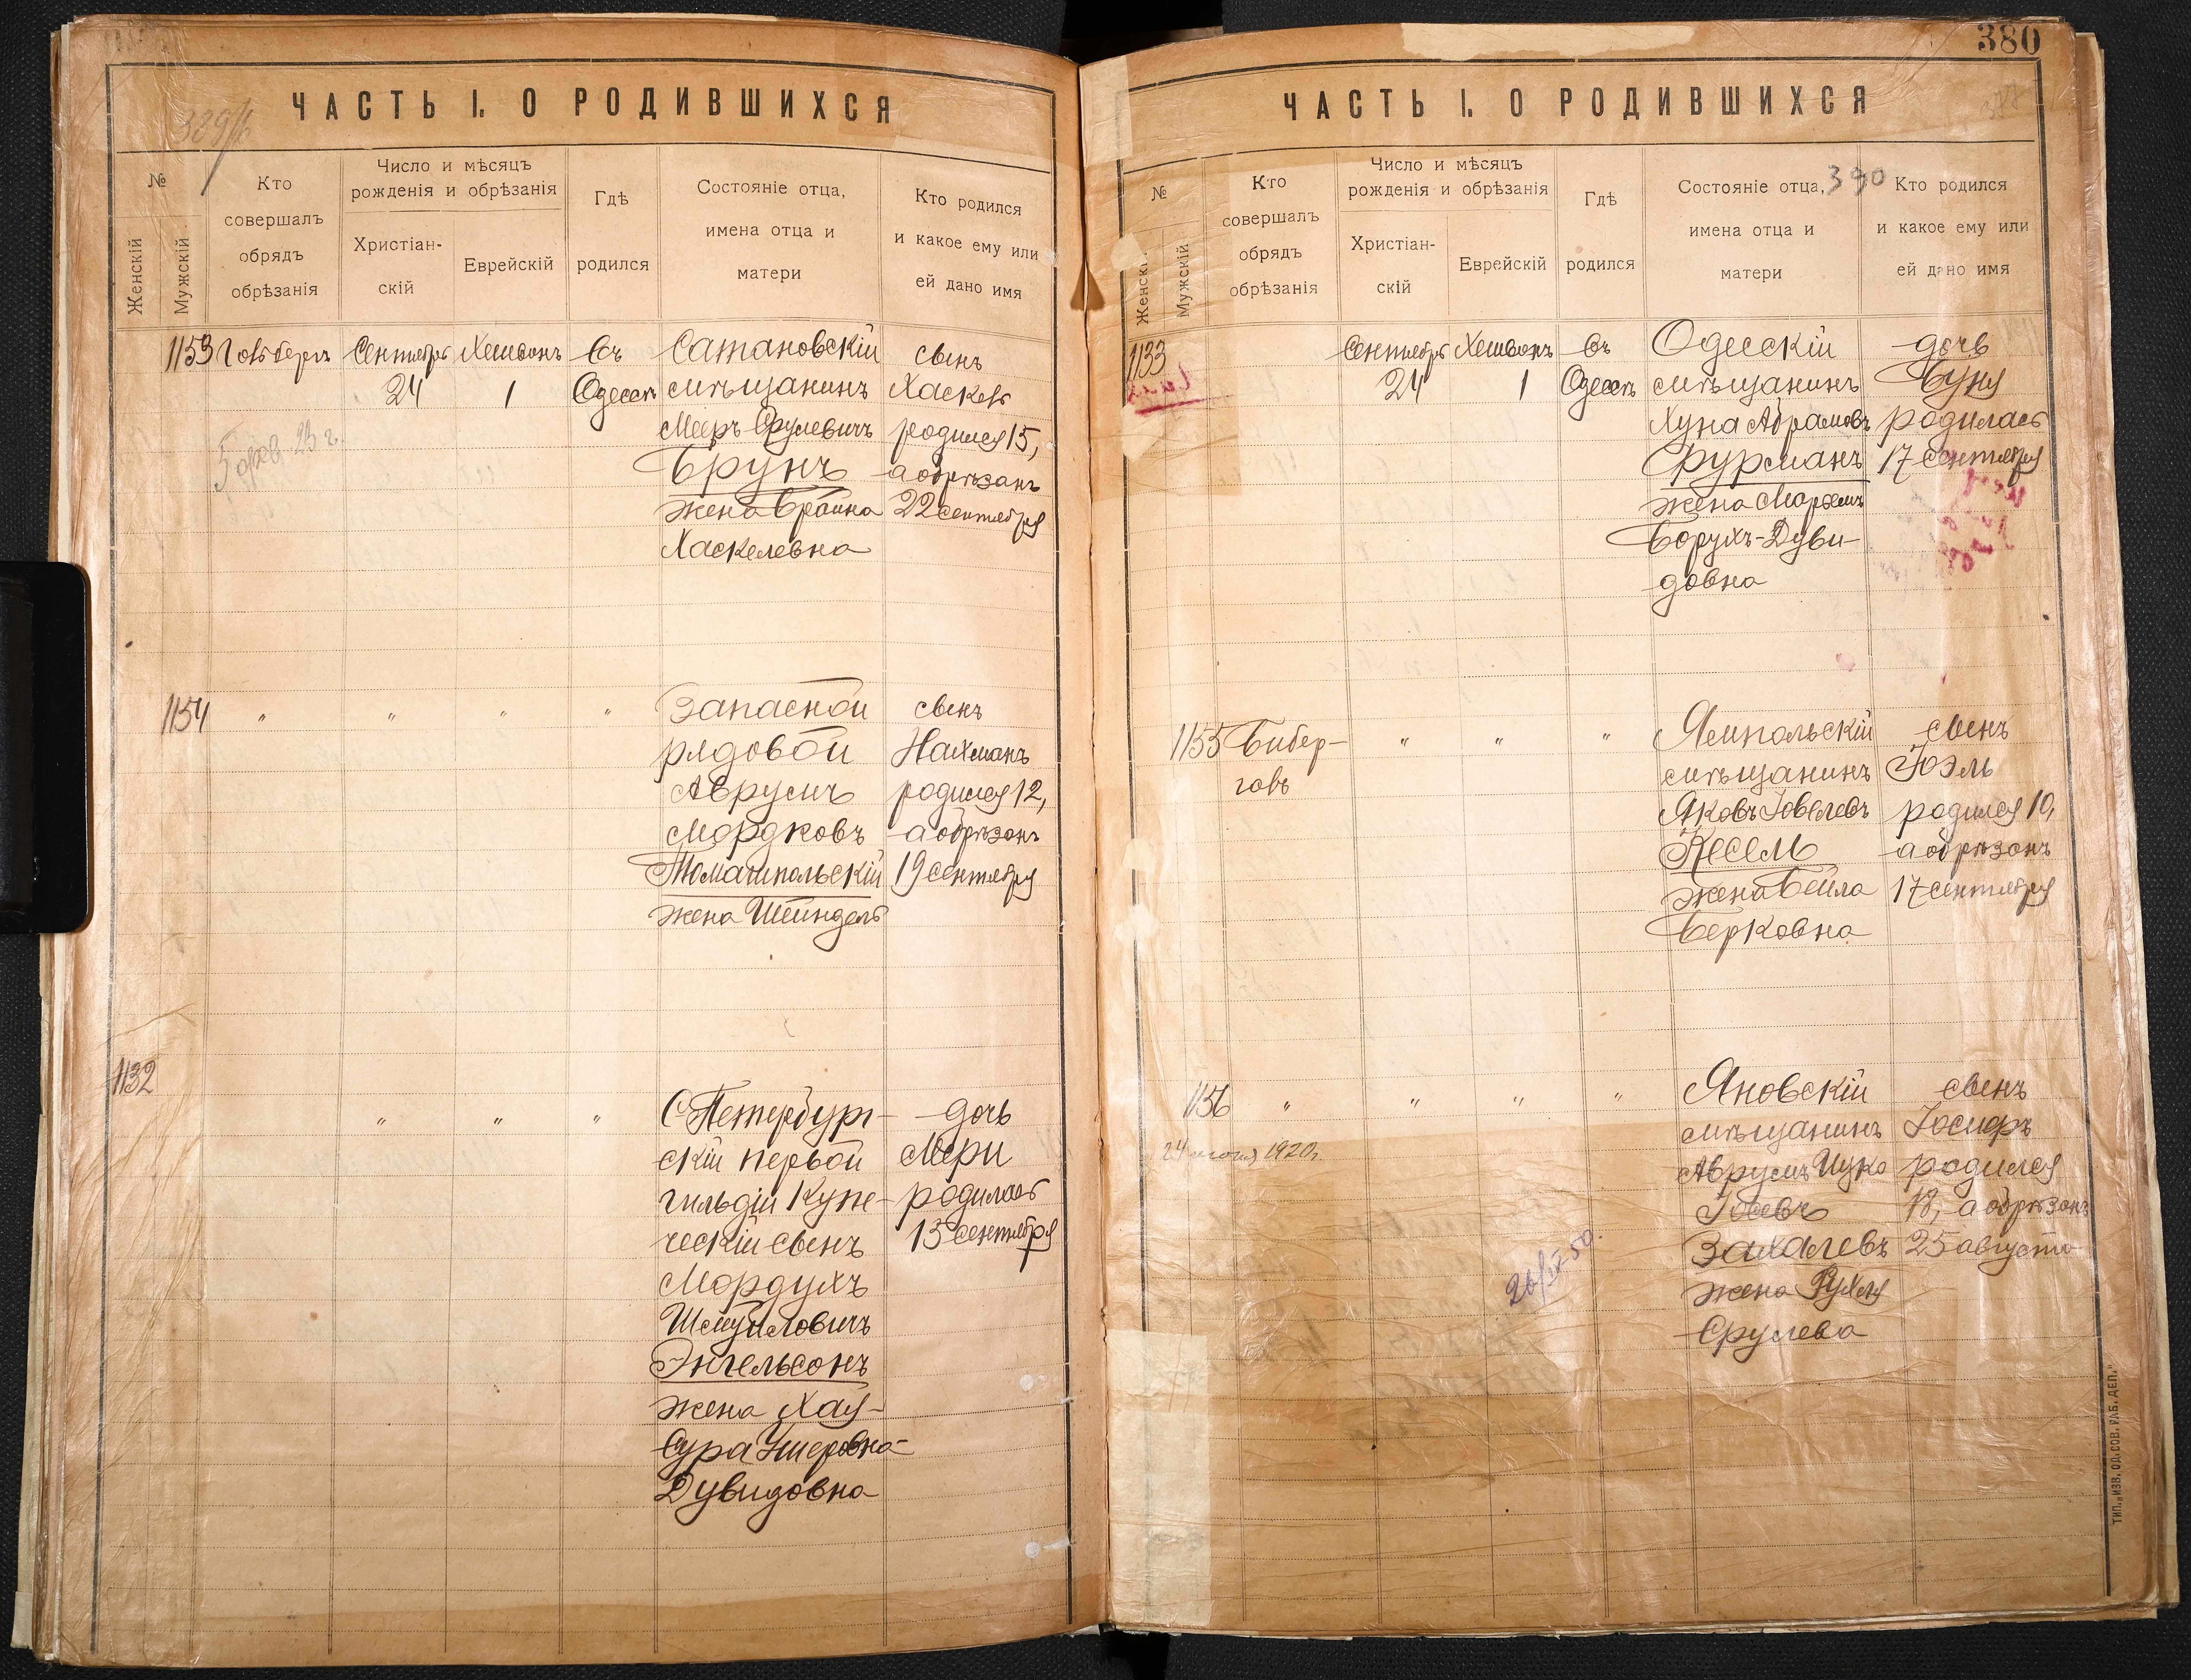 ЧАСТЬ I. О РОДИВШИХСЯ
№
Женскій
Мужскій
Кто
совершалъ
обрядъ
обрѣзанія
Число и мѣсяцъ
рожденія и обрѣзанія
Христіан-
скій
Еврейскій
Гдѣ
родился
Состояніе отца,
имена отца и
матери
Кто родился
и какое ему или
ей дано имя
1153
Сентября
24
Хешвонъ
1
Въ
Одессѣ
Сатановскій
мѣщанинъ
Мееръ Срулевичъ
Брунъ
жена
Хаскелевна
сынъ
Хаскель
родился 15,
а обрѣзанъ
22 сентября
5 фев. 23 г.
1154
"
"
"
"
Запасной
рядовой
Аврумъ
Мордковъ
Томашпольскій
жена Шейндель
сынъ
Нахманъ
родился 12,
а обрѣзанъ
19 сентября
1132
"
"
"
С-Петербург-
скій первой
гильдіи купе-
ческій сынъ
Мордухъ
Шмуйловичъ
Энгельсонъ
жена Хая-
Сура Ушеровна-
Дувидовна
дочь
Мери
родилась
13 сентября
380
ЧАСТЬ I. О РОДИВШИХСЯ
390
№
Женскій
Мужскій
Кто
совершалъ
обрядъ
обрѣзанія
Число и мѣсяцъ
рожденія и обрѣзанія
Христіан-
скій
Еврейскій
Гдѣ
родился
Состояніе отца,
имена отца и
матери
Кто родился
и какое ему или
ей дано имя
1133
Сентября
24
Хешвонъ
1
Въ
Одессѣ
Одесскій
мѣщанинъ
Хуна Абрамовъ
Фурманъ
жена Марьемъ
Борухъ-Дуви-
довна
дочь
Буня
родилась
17 сентября
1155
Бибер-
галъ
"
"
"
Ямпольскій
мѣщанинъ
Яковъ
Кесель
жена Бейла
Берковна
сынъ
Іоэль
родился 10,
а обрѣзанъ
17 сентября
1156
"
"
"
"
Яновскій
мѣщанинъ
Аврумъ Ицко
Іосевъ
Захалевъ
жена Рухля
Срулева
сынъ
Іосифъ
родился
18, а обрѣзанъ
25 августа
1920 г.
26/IX 50.
ТИП. „ИЗВ. ОД. СОВ. РАБ. ДЕП."